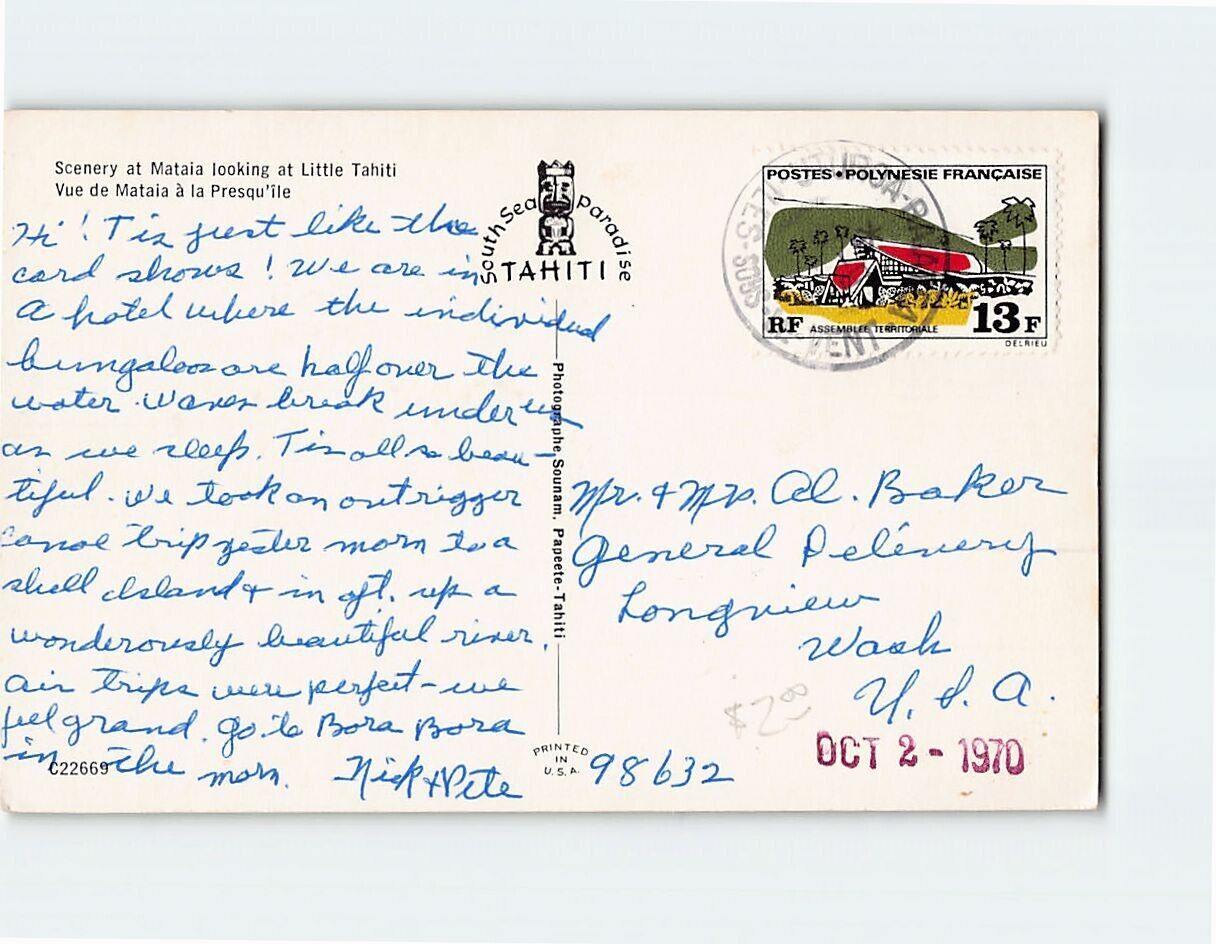 Scenery at Mataia looking at Little Tahiti
Vue de Mataia à la Presqu'île
Hi! Tis just like the
card shows! We are in
A hotel where the individual
bungaloos are half over the
water. Waves break under us
as we sleep. Tis all so beau-
tiful. We took an outrigger
canoe trip yester morn to a
shell Island & in aft. up a
wonderously beautiful river.
Air trips were perfect - we
feel grand. Go to Bora Bora
in the morn. Nick & Pete
C22669
South Sea Paradise
TAHITI
Photographe Sounam, Papeete-Tahiti
PRINTED
IN
U.S.A.
POSTES • POLYNESIE FRANÇAISE
RF ASSEMBLÉE TERRITORIALE 13F
DELRIEU
VENT
Mr. & Mrs. Al. Baker
General Delivery
Longview
Wash
U.S.A.
98632
OCT 2 - 1970